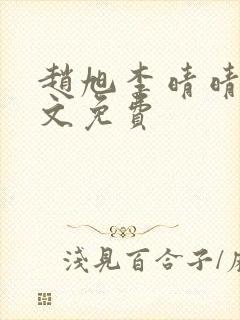 趙旭李晴晴
文免費
淺見百合子/